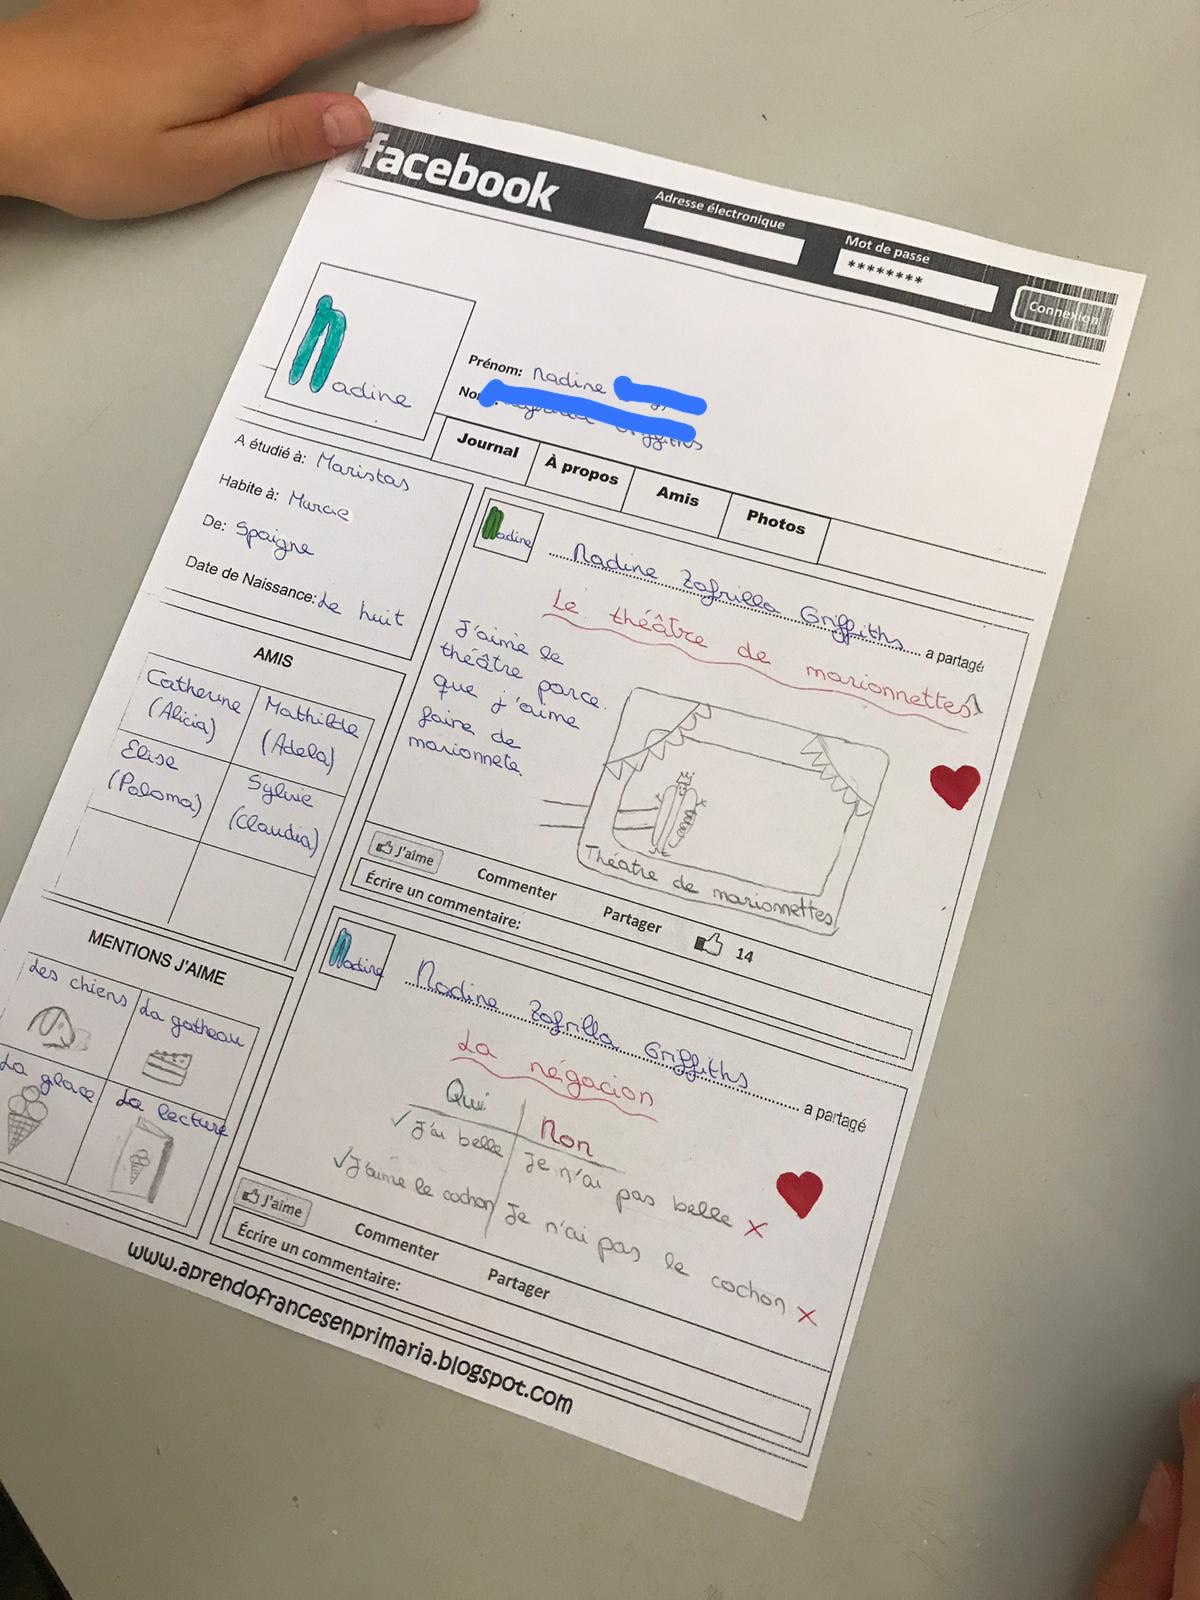 facebook
Adresse électronique
Mot de passe
********
Connexion
nadine
Prénom: nadine
Journal
À propos
Amis
Photos
A étudié à: Maristas
Habite à: Murcie
De: Spaigne
Date de Naissance: Le huit
AMIS
Catherine
(Alicia)
Mathilde
(Adela)
Elise
(Paloma)
Sylvie
(Claudia)
MENTIONS J'AIME
Les chiens
La gatheau
La glace
La lecture
nadine
Nadine Zafrilla Griffiths a partagé
Le théâtre de marionnettes
J'aime le
théâtre parce
que j'aime
faire de
marionnete.
Théatre de marionnettes
J'aime
Commenter
Partager
14
Écrire un commentaire:
nadine
Nadine Zafrilla Griffiths a partagé
La négacion
Oui
Non
J'ai belle
Je n'ai pas belle
J'aime le cochon
Je n'ai pas le cochon
J'aime
Commenter
Partager
Écrire un commentaire:
www.aprendofrancesenprimaria.blogspot.com